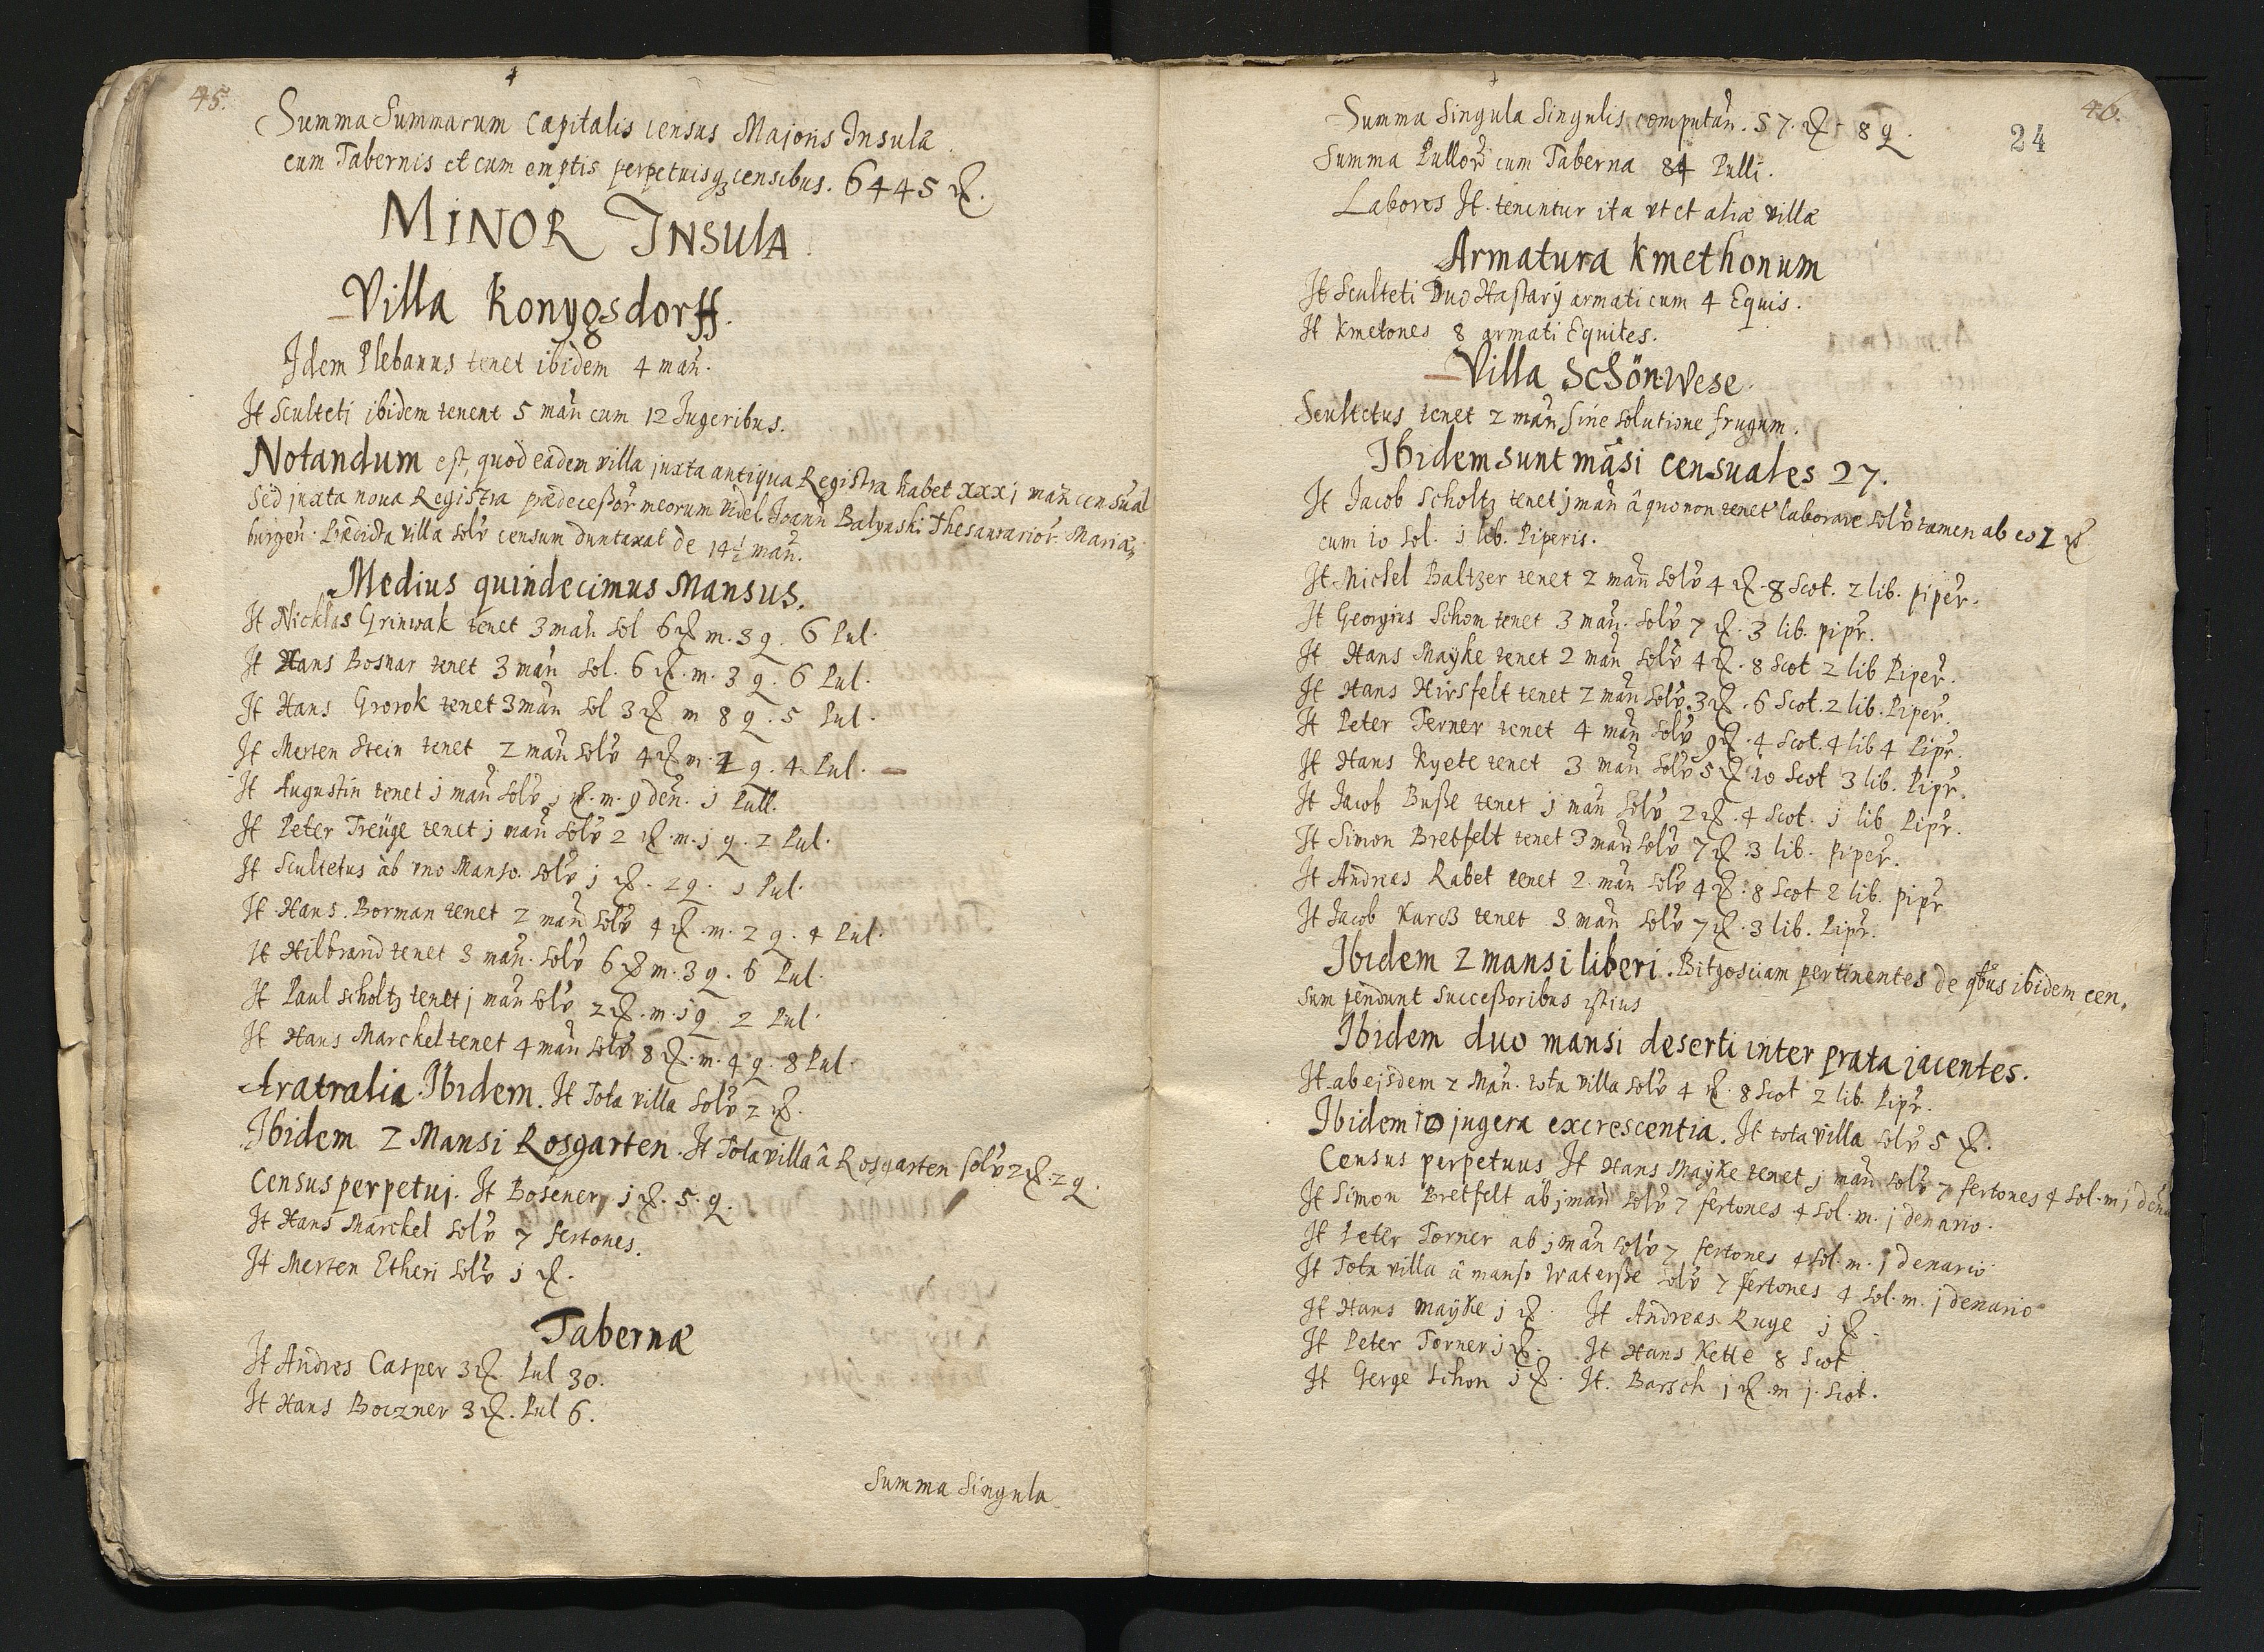 45.
Summa Summarum capitalis census Majoris Insulæ
cum Tabernis et cum emptis perpetuisqꝫ censibus. 6445 ꝶ.
MINOR INSULA.
Villa Konygsdorff.
Idem Plebanus tenet ibidem 4 mañ.
It Sculteti ibidem tenent 5 mañ cum 12 Jugeribus.
Notandum est, quod eadem villa juxta antiqua Registra habet xxxj mañ censual
Sed juxta noua Registra prædeceßor̃ meorum videl. Joann̄ Balynski Thesaurarior̃ Mariæ,,
burgeñ. Prædicta villa solṽ censum duntaxat de 14½ mañ.
Medius quindecimus Mansus.
It Nicklas Grinwak tenet 3 mañ sol 6 ꝶ m. 3 q. 6 Pul.
It Hans Bosnar tenet 3 mañ sol. 6 ꝶ. m. 3 q. 6 Pul.
It Hans Grorok tenet 3 mañ sol 3 ꝶ m 8 q. 5 Pul.
It Merten Stein tenet 2 mañ solṽ 4 ꝶ m. 2 q. 4. Pul.
It Augustin tenet j mañ solṽ j ꝶ. m. 9 deñ. j Pull.
It Peter Treüge tenet j mañ solṽ 2 ꝶ. m. j q. 2 Pul.
It Scultetus ab vno Manso. solṽ j ꝶ. 2 q. j Pul.
It Hans. Borman tenet 2 mañ solṽ 4 ꝶ. m. 2 q. 4 Pul.
It Hilbrand tenet 3 mañ. solṽ 6 ꝶ m. 3 q. 6 Pul.
It Paul scholtz tenet j mañ solṽ 2 ꝶ. m. j q 2 Pul.
It Hans Marckel tenet 4 mañ solṽ 8 ꝶ. m. 4 q. 8 Pul.
Aratralia Ibidem. It Tota villa solṽ 2 ꝶ.
Ibidem 2 Mansi Rosgarten. It Tota villa â Rosgarten solṽ 2 ꝶ. 2 q.
Census perpetuj. It Bosener j ꝶ. 5. q.
It Hans Marckel solṽ 7 fertones.
It Merten Etheri solṽ j ꝶ.
Tabernæ
It Andres Casper 3 ꝶ. Pul 30.
It Hans Boczner 3 ꝶ. Pul 6.
Summa Singula
46.
24
Summa Singula Singulis computañ. 57. ꝶ. 8 q.
Summa Pullor̃ cum Taberna 84 Pulli.
Labores It. tenentur ita vt et aliæ villæ
Armatura Kmethonum
It Sculteti Duo Hastarij armati cum 4 Equis.
It Kmetones 8 armati Equites.
Villa Schönwese.
Scultetus tenet 2 mañ sine solutione frugum.
Ibidem sunt mãsi censuales 27.
It Jacob Scholtz tenet j mañ â quo non tenet laborare solṽ tamen ab eo 2 ꝶ.
cum 10 sol. j lib. Piperis.
It Michel Baltzer tenet 2 mañ solṽ 4 ꝶ. 8 Scot. 2 lib. piper̃.
It Georgius Schon tenet 3 mañ. solṽ 7 ꝶ. 3 lib. pipr̃.
It Hans Maÿke tenet 2 mañ solṽ 4 ꝶ. 8 Scot 2 lib Piper̃.
It Hans Hirsfelt tenet 2 mañ solṽ. 3 ꝶ. 6 Scot. 2 lib. Piper̃.
It Peter Terner tenet 4 mañ solṽ 9 ꝶ. 4 Scot. 4 lib 4 Pipr̃.
It Hans Ryete tenet 3 mañ solṽ 5 ꝶ 10 Scot 3 lib. Pipr̃.
It Jacob Buße tenet j mañ solṽ 2 ꝶ. 4 Scot. j lib Pipr̃.
It Simon Bretfelt tenet 3 mañ solṽ 7 ꝶ 3 lib. Piper̃.
It Andreas Rabet tenet 2. mañ solṽ 4 ꝶ. 8 Scot 2 lib. pipr̃
It Jacob Karcß tenet 3 mañ solṽ 7 ꝶ. 3 lib. Pipr̃.
Ibidem 2 mansi liberi. Bitgosciam pertinentes de qbus ibidem cen,,
sum pendunt succeßoribus istius
Ibidem duo mansi deserti inter prata jacentes.
It ab ejsdem 2 Mañ. tota villa solṽ 4 ꝶ. 8 Scot 2 lib. Pipr̃.
Ibidem 10 jugera excrescentia. It tota villa solṽ 5 ꝶ.
Census perpetuus It Hans Maÿke tenet j mañ solṽ 7 fertones 4 sol. m j den
It Simon Bretfelt ab j mañ solṽ 7 fertones 4 sol. m. j denario.
It Peter Torner ab j mañ solṽ 7 fertones 4 sol. m. j denario
It Tota villa â manso Waterße solṽ 7 fertones 4 sol. m. j denario
It Hans Maÿke j ꝶ. It Andreas Ruge j ꝶ.
It Peter Torner j ꝶ. It Hans Kette 8 Scot
It Gerge Schon j ꝶ. It. Barsch j ꝶ. m j. Scot.